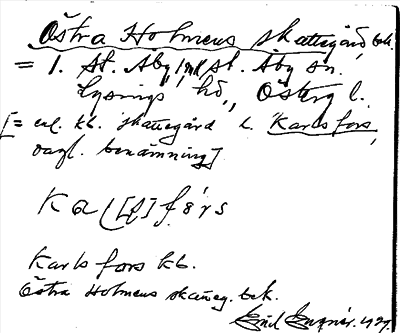 Östra Holmens skattegård, bek.
= 1. St. Åby, St. Åby sn.
Lysings hd., Österg l.
[= enl. kb. skattegård h. Karlsfors,
vagl. benämning]
Ka(l)[s]förs
Karls fors kb.
Östra Holmens skatteg. bek.
Emil